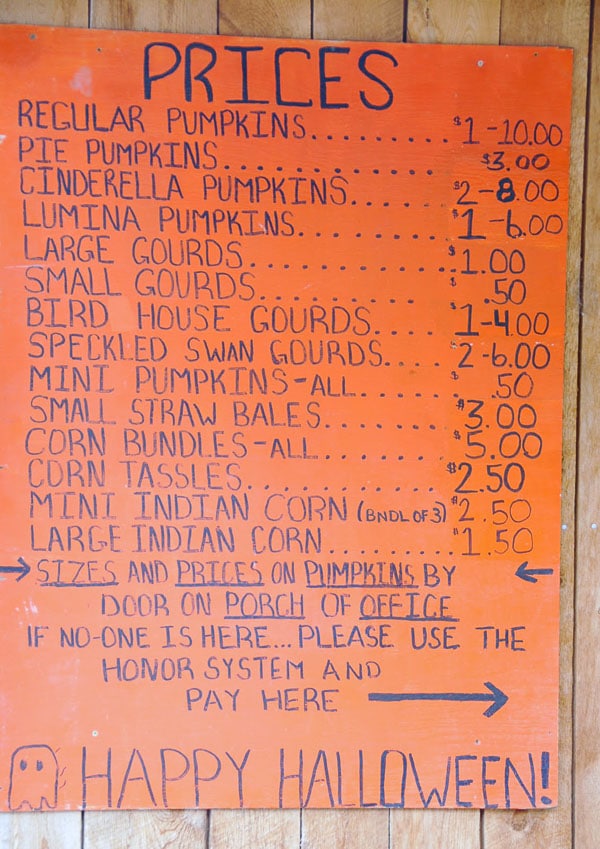 PRICES
REGULAR PUMPKINS........ $1-10.00
PIE PUMPKINS............ $3.00
CINDERELLA PUMPKINS..... $2-8.00
LUMINA PUMPKINS......... $1-6.00
LARGE GOURDS............ $1.00
SMALL GOURDS............ $.50
BIRD HOUSE GOURDS.... $1-4.00
SPECKLED SWAN GOURDS.... $2-6.00
MINI PUMPKINS-ALL...... $.50
SMALL STRAW BALES....... $3.00
CORN BUNDLES-ALL........ $5.00
CORN TASSLES............ $2.50
MINI INDIAN CORN (BNDL OF 3) $2.50
LARGE INDIAN CORN.......... $1.50
→ SIZES AND PRICES ON PUMPKINS BY ←
DOOR ON PORCH OF OFFICE
IF NO-ONE IS HERE... PLEASE USE THE
HONOR SYSTEM AND
PAY HERE →
HAPPY HALLOWEEN!